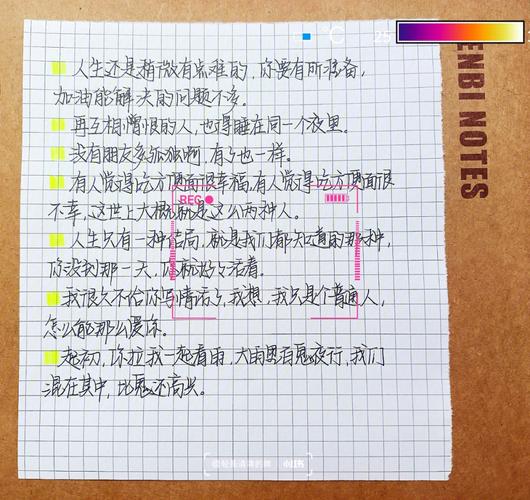 C 25
ENBI NOTES
人生还是稍微有点难的,你要有所准备,
加油能解决的问题不多。
再互相憎恨的人,也得睡在同一个夜里。
没有朋友多孤独啊,有了也一样。
有人觉得吃方便面很幸福,有人觉得吃方便面很
不幸,这世上大概就是这么两种人。
REC
人生只有一种结局,就是我们都知道的那种,
你没到那一天,你就好好活着。
我很久不给你写情话了,我想,我只是个普通人,
怎么能那么爱你。
起初,你拉我一起看雨,大雨里百鬼夜行,我们
混在其中,比鬼还高兴。
小红书